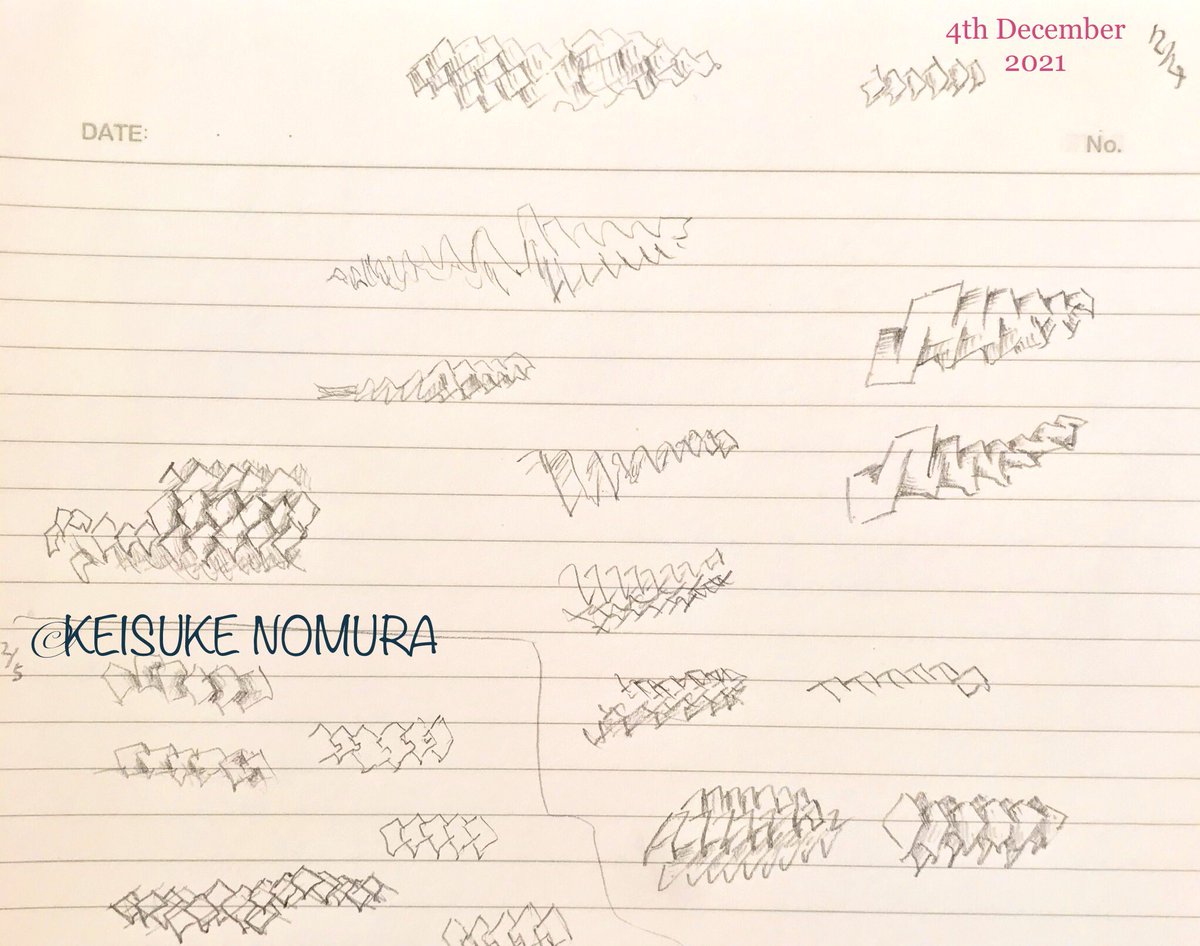 4th December
2021
12/4
DATE:
No.
©KEISUKE NOMURA
12/5